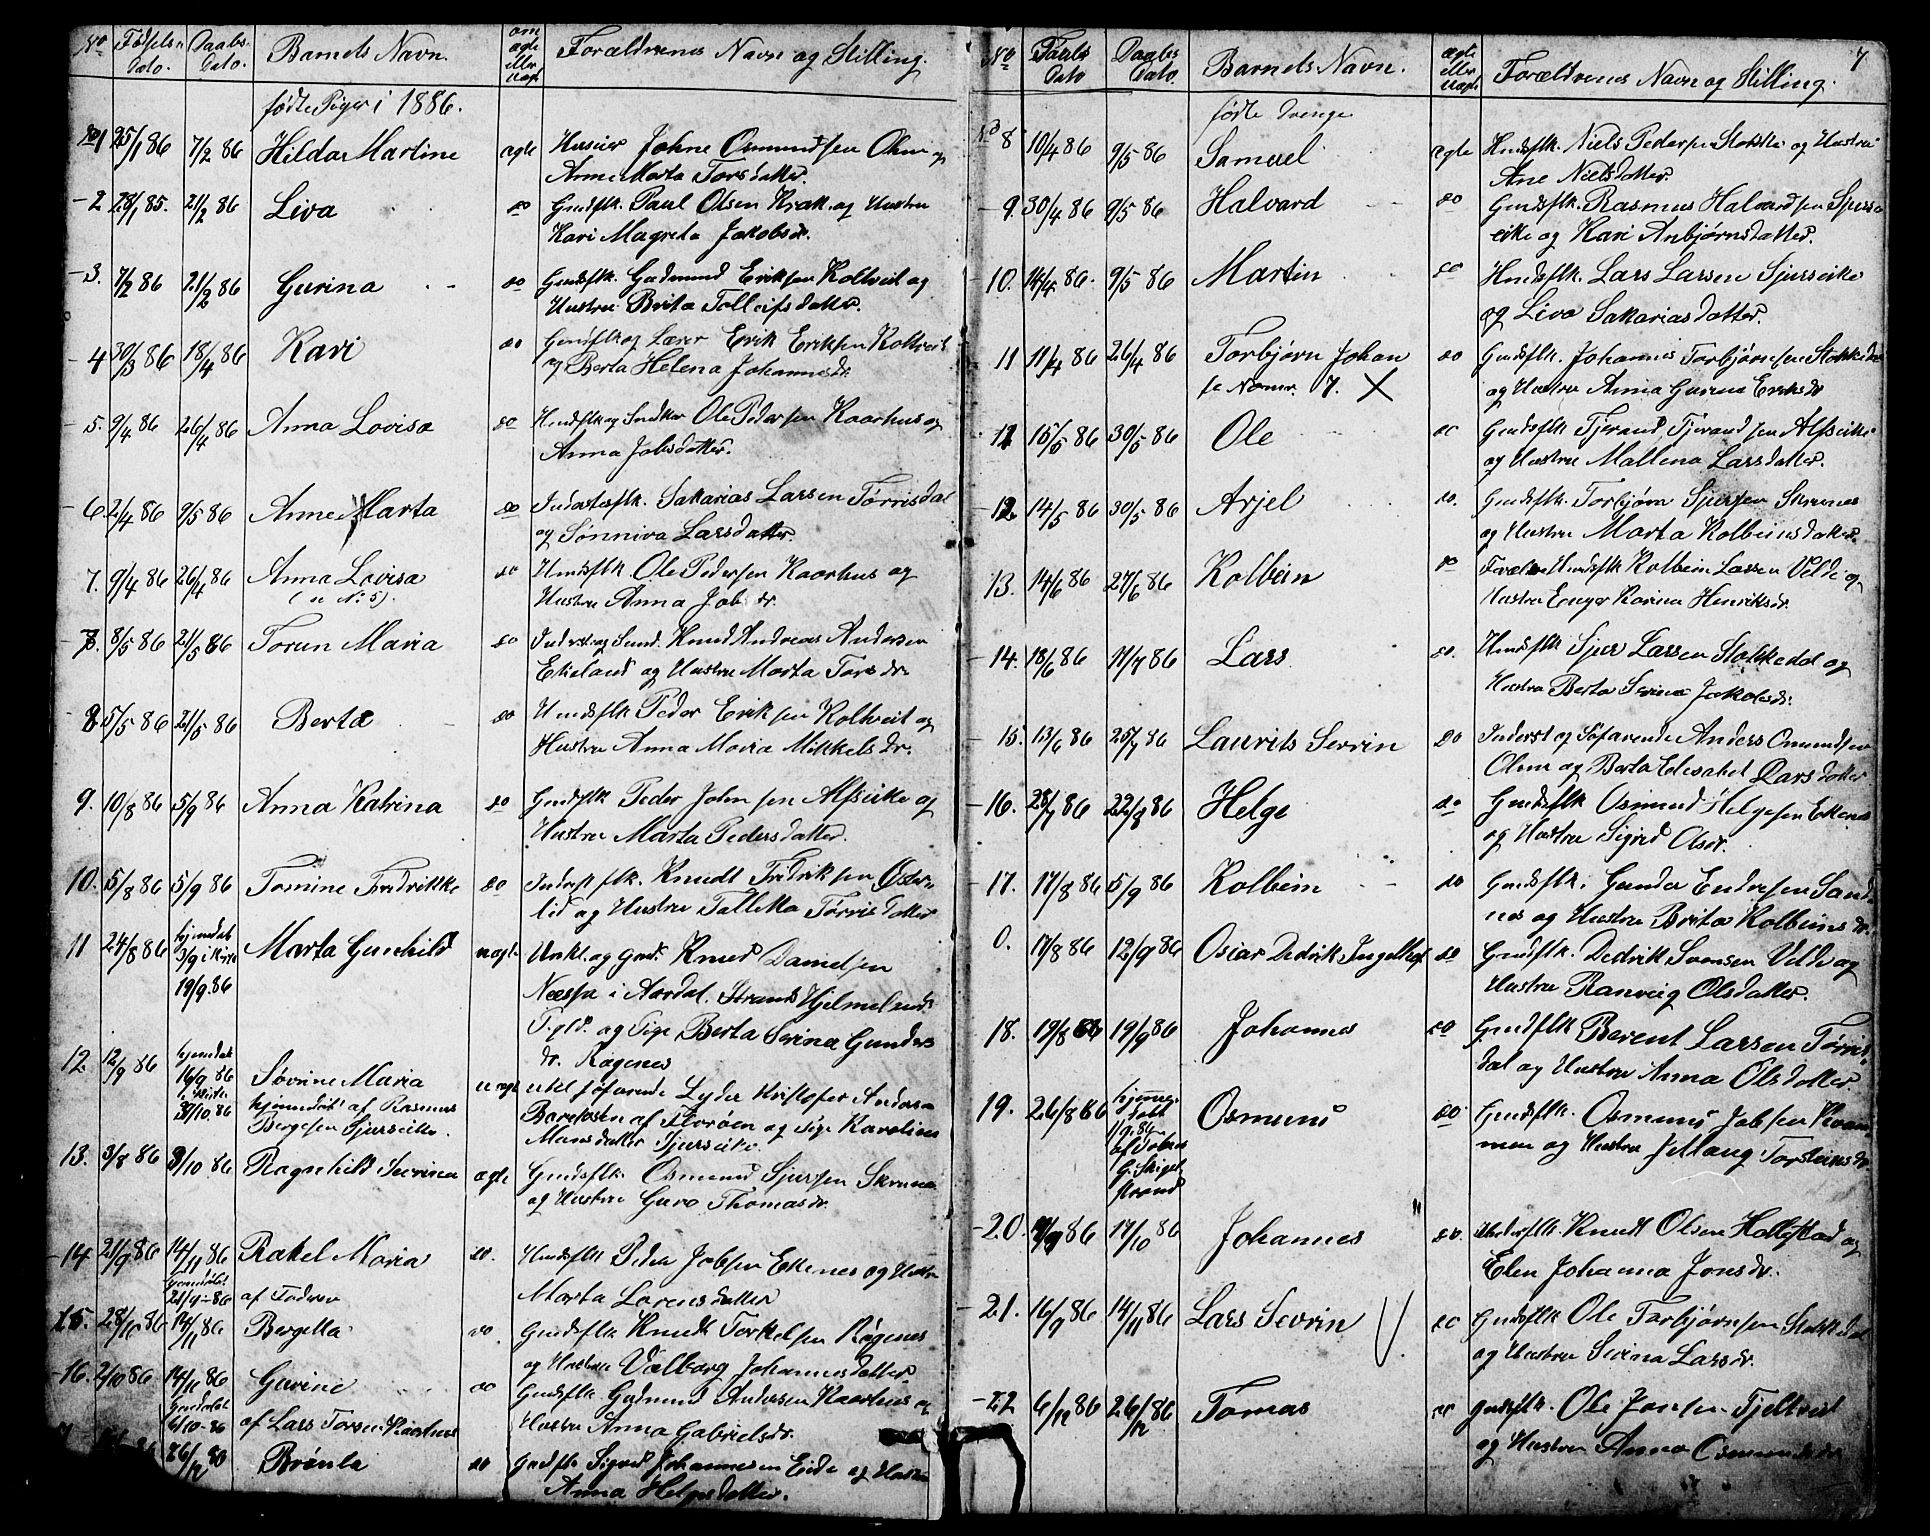 No Fødsels Dato. Daabs Dato. Barnets Navn om ægte eller uægte Forældrenes Navn og Stilling.
fødte Piger i 1886.
1 25/1 86 7/2 86 Hilda Martine ægte Johne Osmundsen
Anna Marta Torsdatter.
2 28/1 85. 21/2 86 Liva do Grdsflk. Paul Olsen Krak. og Hustru
Kari Magreta Jakobsdr.
3. 7/2 86 21/2 86 Gurina do Grdsflk. Gudmund Eriksen Koltveit og
Hustru Brita Tolleifsdatter.
4 30/3 86 18/4 86 Kari do Grdsflk og Lærer Erik Eriksen Koltveit
og Berta Helena Johannesdr.
5. 9/4 86 26/4 86 Anna Lovisa do Husflk og Snedker Ole Pedersen Kaarhus og
Anna Jobsdatter.
6 2/4 86 9/5 86 Anne Marta do Inderstsflk. Sakarias Larsen Tørrisdal
og Sønniva Larsdatter.
7. 9/4 86 26/4 86 Anna Lovisa do Husflk Ole Pedersen Kaarhus og
(se No 5). Hustru Anna Jobsdr.
8/5 86 21/5 86 Torun Maria do Inderst og Knud Andreas Andersen
Ekeland og Hustru Marta Torsdr.
8 5/5 86 21/5 86 Berta do Husflk Peder Eriksen Koltveit og
Hustru Anna Maria Mikkelsdr.
9. 10/8 86 5/9 86 Anna Katrina do Grdsflk Peder Johnsen Alfsvike og
Hustru Marta Pedersdatter.
10. 5/8 86 5/9 86 Tomine Fredrikke do Inderst flk. Knudt Fredriksen Øster-
lid og Hustru Talletta Tørrisdatter
11 24/8 86 hjemdøbt 3/9 i Kirke 19/9 86 Marta Gunhild uægte Unkl. og Grd. Knud Danielsen
Næspe i Aardal. Strand Hjelmeland
og Pige Berta Serina Gunders
dr. Ragenes
12. 12/9 86 hjemdøbt 16/9 86 i Kirke 31/10 86 Søvrine Maria uægte Unkl søfarende Lyder Kristofer Anders
hjemdøbt af Rasmus
Bergesen Sjursvike. af Florøen og Pige Karoline
Mansdatter Sjursvike.
13. 3/8 86 3/10 86 Ragnhild Severina ægte Grdsflk. Osmund Sjursen Skrunes
og Hustru Guro Thomasdr.
14 21/9 86 14/11 86 Rakel Maria do. Husflk Peder Jobsen Ekenes og Hustru
hjemdøbt 21/9-86 af Faderen Marta Lorensdatter
15. 28/10 86 14/11 86 Bergetta do. Grdsflk Knudt Torkelsen Ragenes
og Hustru Valborg Johannesdatter
16. 2/10 86 14/11 86 Gurine do Grdsflk. Gudmund Andersen Kaarhus og
hjemdøbt 6/10-86 af Lars Torsen Kaarhus Hustru Anna Gabrielsdr.
26/12 86 Brønla do Grdsflk Sigurd Johannesen Eide og Hustru
Anna Helgesdatter.
No Fødsels Dato Daabs Dato. Barnets Navn. ægte eller uægte Forældrenes Navn og Stilling. 7
fødte Drenge
No 8 10/4 86 9/5 86 Samuel ægte Husflk. Niels Pedersen Stokke og Hustru
Ane Nielsdatter.
9. 30/4 86 9/5 86 Halvard do Grdsflk. Rasmus Halvardsen Sjurs-
vike og Kari Anbjørnsdatter.
10. 14/4 86. 9/5 86 Martin do Husflk. Lars Larsen Sjursvike
og Liva Sakariasdatter.
11 11/4 86 26/4 86 Torbjørn Johan do Grdsflk. Johannes Torbjørnsen Stokkedal
se Nomer. 7. X og Hustru Anna Gurina Eriksdr
12 15/5 86 30/5 86 Ole do Grdsflk Tjerand Tjerandsen Alfsvike
og Hustru Mallena Larsdatter.
12. 14/5 86 30/5 86 Arjel do. Grdsflk. Torbjørn Sjursen Skrunes
og Hustru Marta Kolbeinsdatter.
13. 14/6 86 27/6 86 Kolbein do Husflk Kolbein Larsen Velde og
Hustru Enger Karina Henriksdr.
14. 18/6 86 11/7 86 Lars do. Husflk Sjur Larsen Stokkedal og
Hustru Berta Serina Jakobsdr.
15. 13/6 86 25/7 86 Laurits Sevrin do Inderst og Søfarende Anders Omundsen
Olsen og Berta Elisabet Larsdatter
16. 28/7 86 22/8 86 Helge do Grdsflk Osmund Helgesen Ekenes
og Hustru Sigrid Olsdr.
17. 17/8 86 5/9 86 Kolbein do Grdsflk. Gunder Endresen Sand-
nes og Hustru Brita Kolbeinsdr.
0. 17/8 86 12/9 86 Osiar Dedrik Ingelbert do Grdsflk. Dedrik Svensen Velde og
Hustru Ranveig Olsdatter.
18. 19/8 86 19/9 86 Johannes do Grdsflk Berent Larsen Tørris-
dal og Hustru Anna Olsdatter.
19. 26/8 86 hjemme-døbt 1/9 86 af Tobias G. Skigelstrand Osmund do Grdsflk. Osmund Jobsen Kvam-
men og Hustru Jeltaug Torsteinsdr
20. 9/9 86 17/10 86 Johannes do. Inderstflk Knudt Olsen Hallestad og
Elen Johanna Jonsdr.
21. 16/9 86 14/11 86 Lars Sevrin do Grdsflk Ole Torbjørnsen Stokkedal
og Hustru Serina Larsdr.
22 6/12 86 26/12 86 Tomas do Grdsflk. Ole Jonsen Fjeltveit
og Hustru Anna Osmundsdr